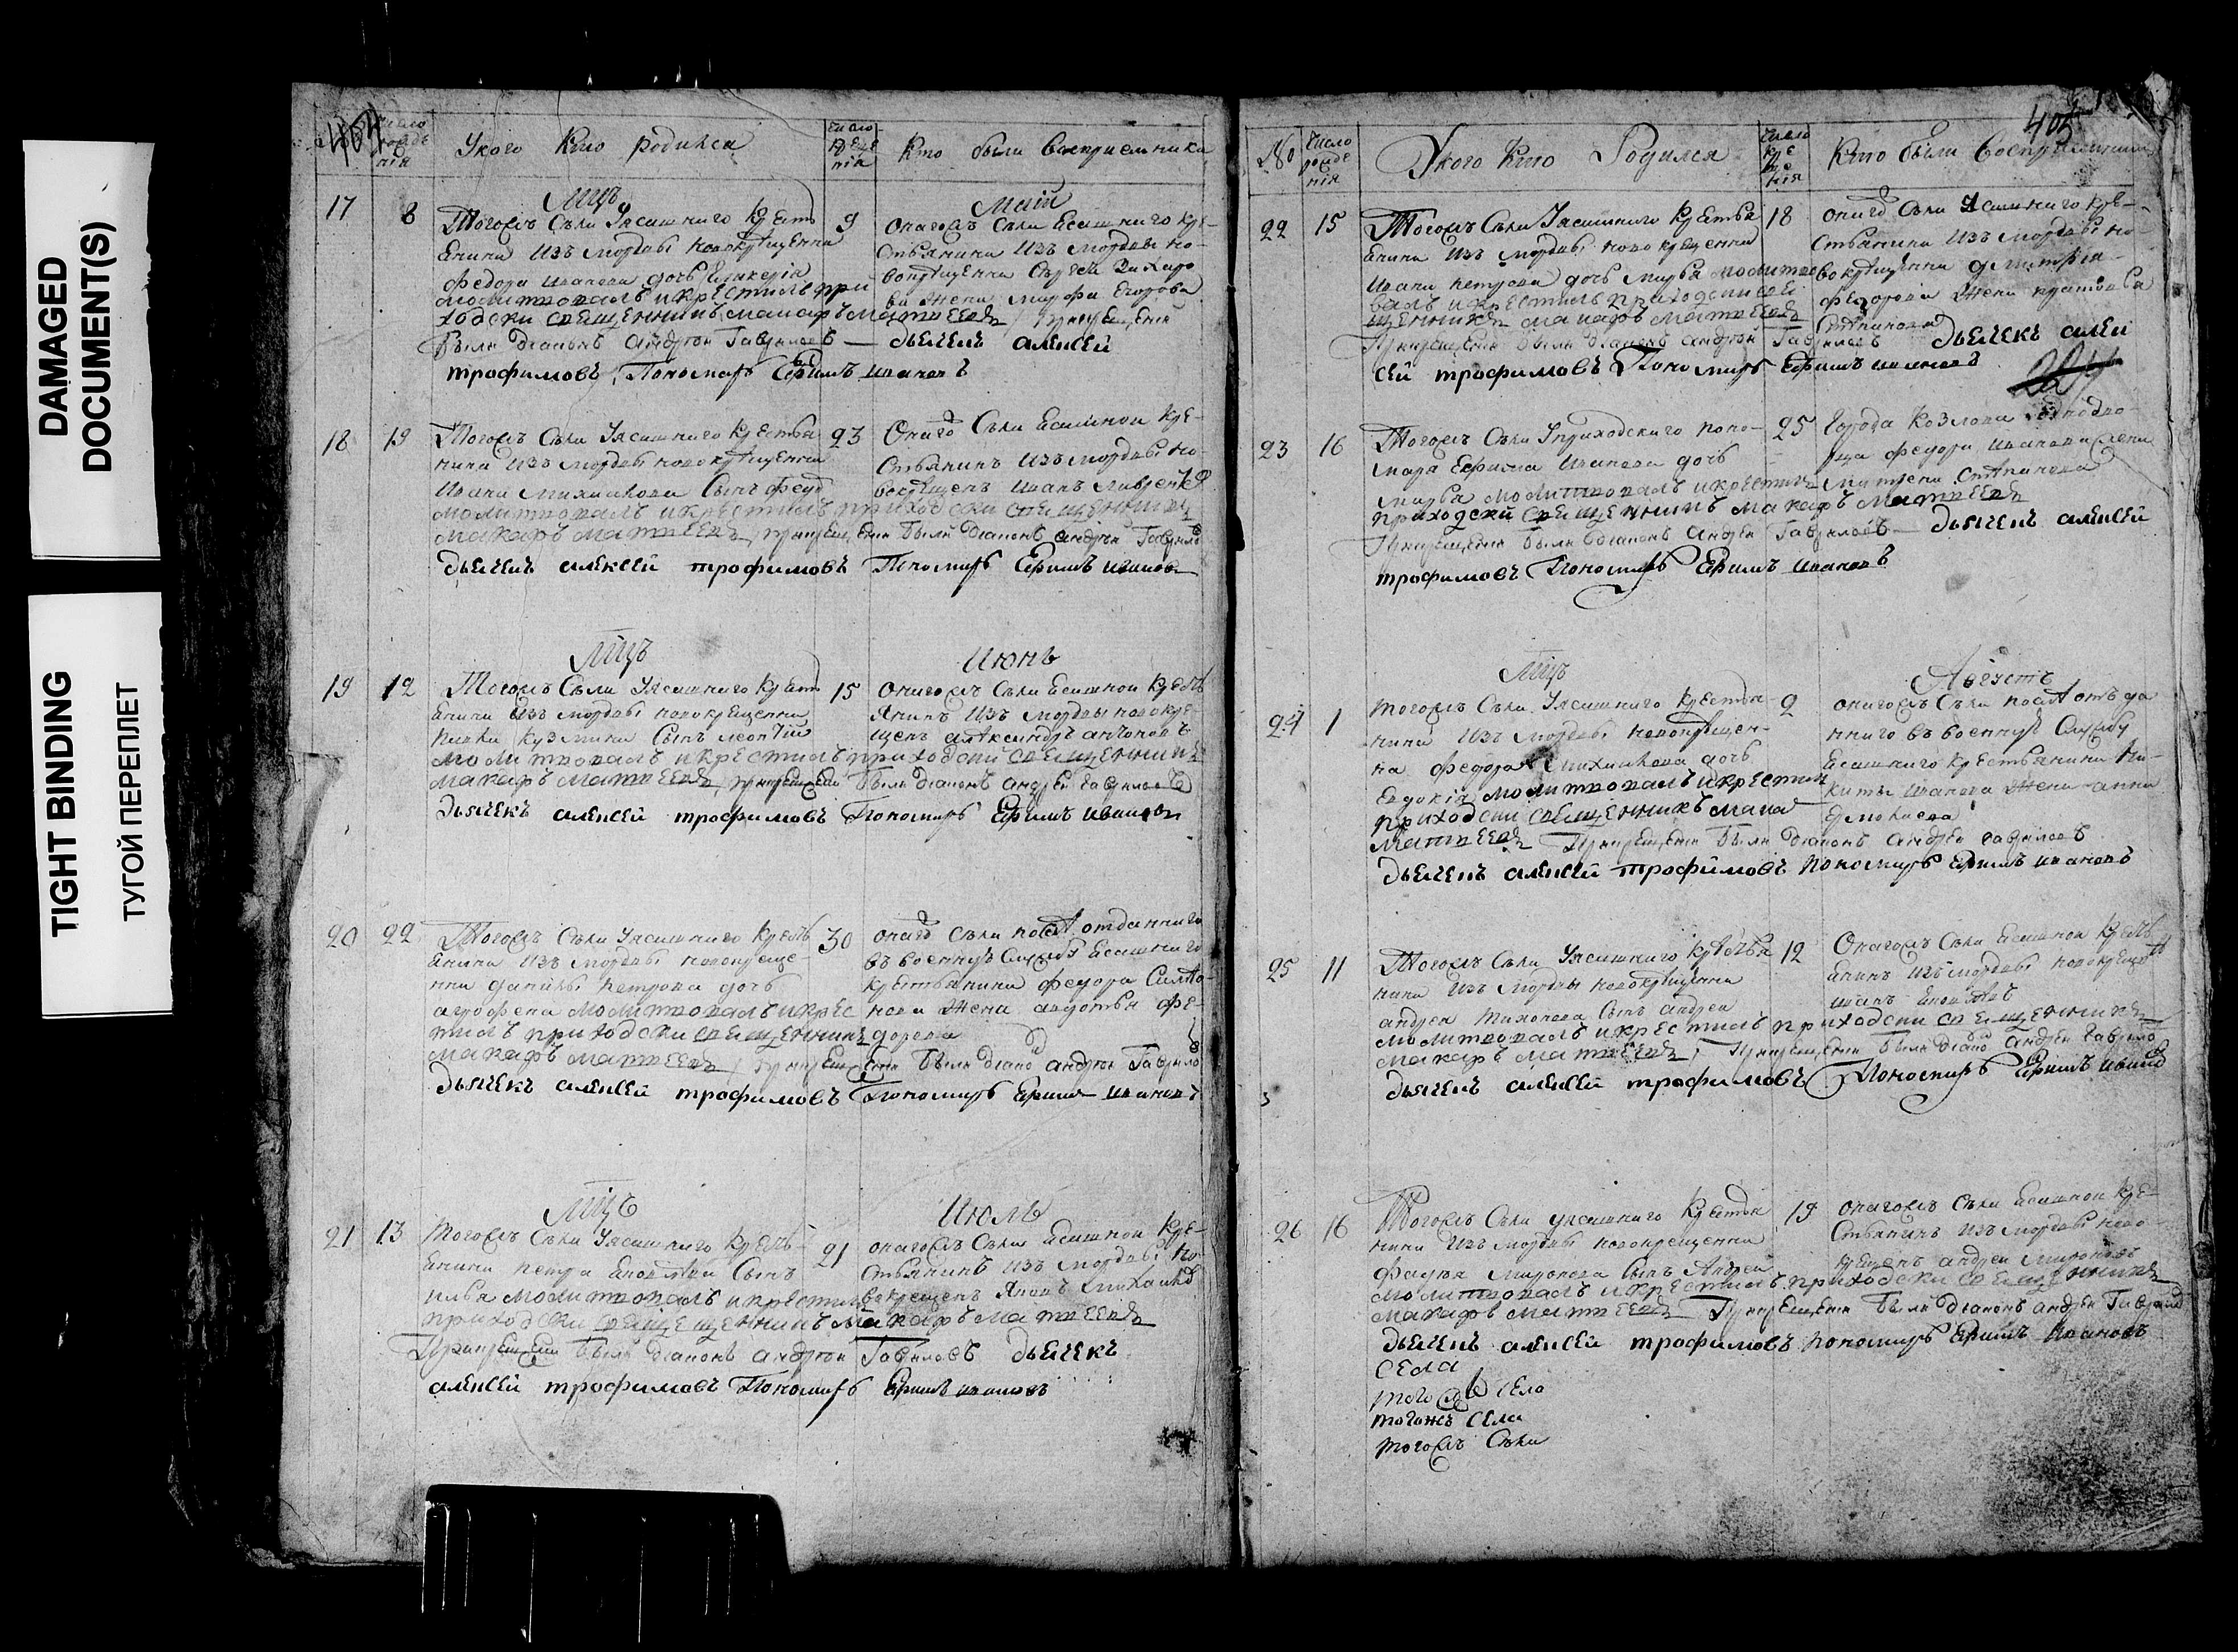 DAMAGED
DOCUMENT(S)
TIGHT BINDING
ТУГОЙ ПЕРЕПЛЕТ
404
число рожде нія
У кого кто родился
число креще нія
кто были восприемники
Мцъ Маій
17 8
Тогожъ села Ясашнаго крестъ
янина изъ мордвы новокрещенна
Федора Иванова дочь Гликерія
молитвовалъ и крестилъ при
ходски священникъ макаръ матвеевъ при крещеніи
были діаконъ андрей Гаврилоеъ дьячекъ алексей
трофимовъ Пономарь Ефимъ ивановъ
9
онагожъ села Ясашнаго кре-
стьянина изъ мордвы но-
вокрещенна Сергея Захаро
ва жена марфа Егорова
18 19
Тогожъ села Ясашнаго крестья
нина изъ мордвы новокрещенна
Ивана михайлова сынъ Федоръ
молитвовалъ и крестилъ приходски священникъ
макаръ матвеевъ при крещеніи были діаконъ андрей Гаврилоеъ
дьячекъ алексей трофимовъ Пономарь Ефимъ ивановъ
23
Онаго села Ясашной кре-
стьянинъ изъ мордвы но-
вокрещенъ иванъ
Мцъ Июнь
19 12
Тогожъ села Ясашнаго крестъ
янина изъ мордвы новокрещенна
кузмина сынъ леонтій
молитвовалъ и крестилъ приходски священникъ
макаръ матвеевъ при крещеніи были діаконъ андрей гаврилоеъ
дьячекъ алексей трофимовъ Пономарь Ефимъ ивановъ
15
онагожъ села Ясашной кресть
янинъ изъ мордвы новокре-
щенъ александръ антоновъ
20 22
Тогожъ села Ясашнаго кресть
янина изъ мордвы новокреще-
нна данилы петрова дочь
агрофена молитвовалъ и крес
тилъ приходски священникъ
макаръ матвеевъ при крещеніи были діаконъ андрей Гаврилоеъ
дьячекъ алексей трофимовъ Пономарь Ефимъ ивановъ
30
онаго села отданнаго
въ военную службу Ясашнаго
крестьянина федора
жена авдотья фе-
дорова
Мцъ Июль
21 13
Тогожъ села Ясашнаго кресть-
янина петра сынъ
илья молитвовалъ и крестилъ
приходски священникъ макаръ матвеевъ
При крещеніи были діаконъ андрей Гаврилоеъ дьячекъ
алексей трофимовъ Пономарь Ефимъ ивановъ
21
онагожъ села Ясашной кре-
стьянинъ изъ мордвы но-
вокрещенъ
405
№
число рожде нія
У кого кто Родился
число кре ще нія
Кто были восприемники
22 15
Тогожъ села Ясашнаго крестья
янина изъ мордвы новокрещенна
Ивана петрова дочь марья молитво
валъ и крестилъ приходски свя
щенникъ макаръ матвеевъ
При крещеніи были діаконъ андрей Гаврилоеъ дьячекъ алек
сей трофимовъ Пономарь Ефимъ ивановъ
18
онаго села Ясашнаго кре-
стьянина изъ мордвы но-
вокрещенна дмитрія
федорова жена
Степанова
204
23 16
Тогожъ села У приходскаго поно-
маря Ефима Иванова дочь
марья молитвовалъ и крестилъ
приходски священникъ макаръ матвеевъ
При крещеніи были діаконъ андрей Гаврилоеъ дьячекъ алексей
трофимовъ Пономарь Ефимъ ивановъ
25
города Козлова однодво-
рца федора иванова жена
матрена степанова
Мцъ Августъ
24 1
Тогожъ села Ясашнаго крестья-
нина изъ мордвы новокрещен-
на федора михайлова дочь
Евдокія молитвовалъ и крестилъ
приходски священникъ мака
матвеевъ При крещеніи были діаконъ андрей гаврилоеъ
дьячекъ алексей трофимовъ пономарь Ефимъ ивановъ
2
онагожъ села отда
ннаго въ военную службу
Ясашнаго крестьянина ни-
киты иванова жена анна
Ермолаева
25 11
Тогожъ села Ясашнаго крестья
нина изъ мордвы новокрещенна
андрея тихонова сынъ андрей
молитвовалъ и крестилъ приходски священникъ
макаръ матвеевъ При крещеніи были діаконъ андрей гаврило
дьячекъ алексей трофимовъ Пономарь Ефимъ ивановъ
12
Онагожъ села Ясашной кресть
янинъ изъ мордвы новокрещенъ
иванъ
26 16
Тогожъ села ясашнаго крестья
нина изъ мордвы новокрещенна
миронова сынъ Андрей
молитвовалъ и крестилъ приходски священникъ
макаръ матвеевъ При крещеніи были діаконъ андрей Гаврилоеъ
дьячекъ алексей трофимовъ пономарь Ефимъ ивановъ
19
онагожъ села Ясашной кре-
стьянинъ изъ мордвы ново
крещенъ андрей мироновъ
села
того село
тогожъ села
тогожъ села